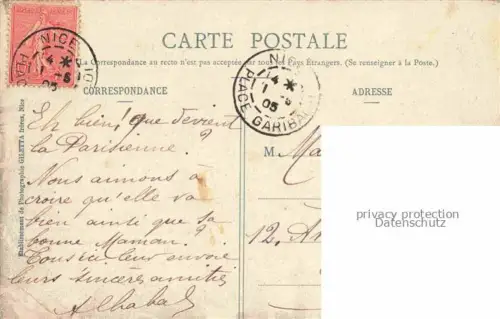 CARTE POSTALE
La Correspondance au recto n'est pas acceptée par tous les Pays Étrangers. (Se renseigner à la Poste.)
CORRESPONDANCE
ADRESSE
NICE
PLACE GARIBALDI
14 *
05
NICE
PLACE GARIBALDI
14 *
1
05
Etablissement de Photographie GILETTA frères, Nice
Eh bien! que devient
la Parisienne?
Nous aimons à
croire qu'elle va
bien ainsi que sa
bonne Maman?
Tous ici leur envoie
leurs sincères amitiés
M. Ma
12, A
privacy protection
Datenschutz